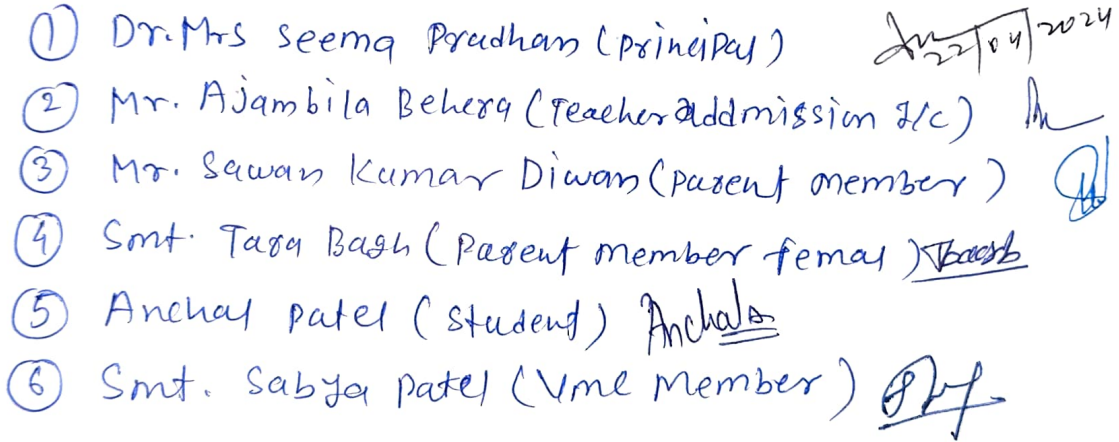 ① Dr. Mrs Seema Pradhan (Principal) 22/04/2024
② Mr. Ajambila Behera (Teacher addmission I/C)
③ Mr. Sawan Kumar Diwan (Parent member)
④ Smt. Tara Bagh (Parent member femal)
⑤ Anchal Patel (Student) Anchal
⑥ Smt. Sabya Patel (Vme Member)